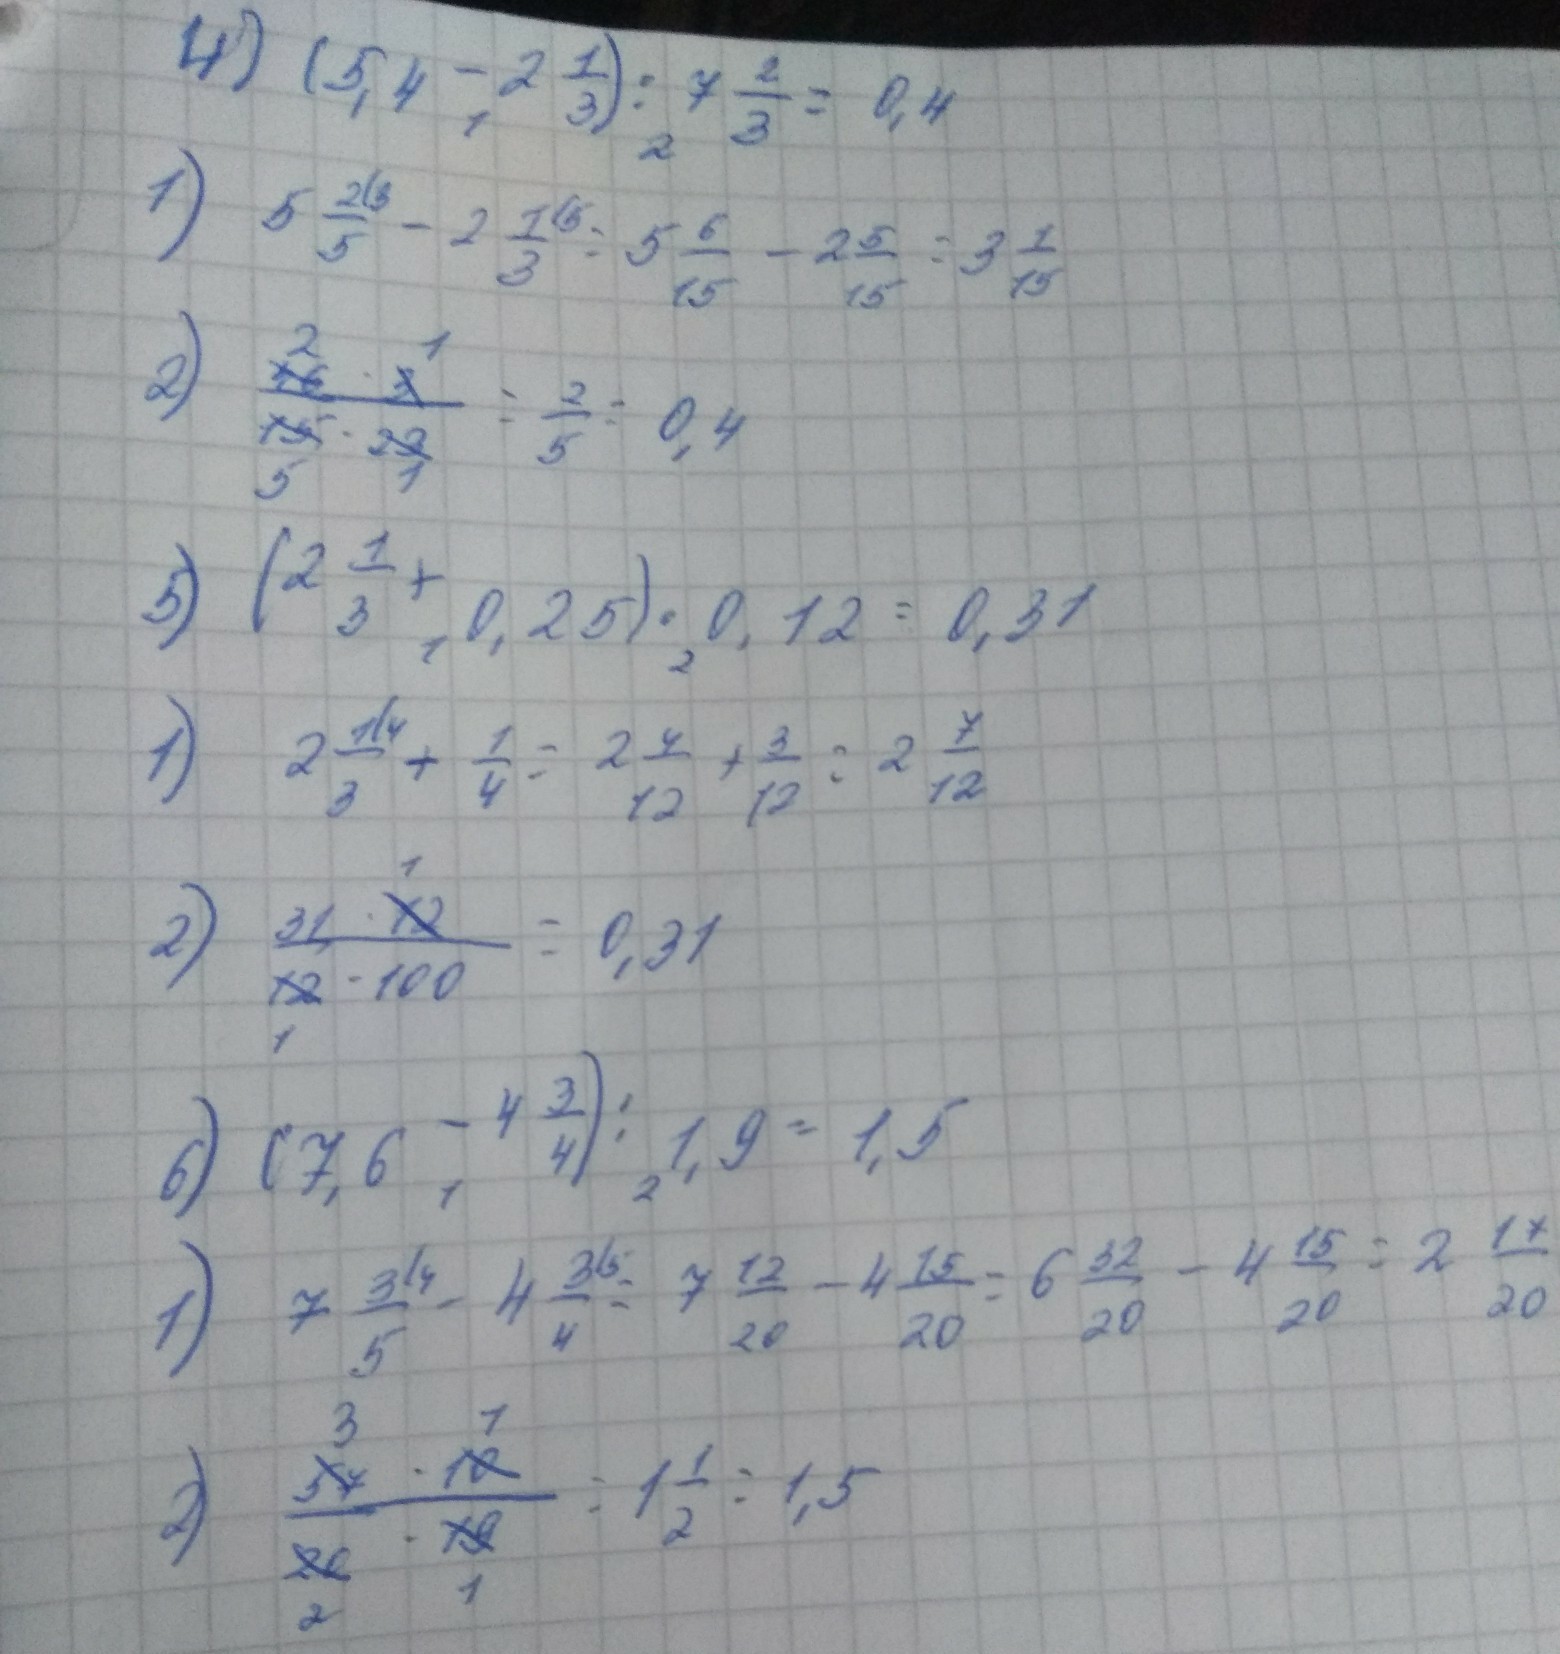 4) (5,4 - 2 1/3) : 7 2/3 = 0,4
1 2
1) 5 2(3/5 - 2 1(5/3 = 5 6/15 - 2 5/15 = 3 1/15
2 1
2) 46 · 3 / 15 · 23 = 2/5 = 0,4
5 1
5) (2 1/3 + 0,25) · 0,12 = 0,31
1 2
1) 2 1(4/3 + 1/4 = 2 4/12 + 3/12 = 2 7/12
1
2) 31 · 12 / 12 · 100 = 0,31
1
6) (7,6 - 4 3/4) : 1,9 = 1,5
1 2
1) 7 3(4/5 - 4 3(5/4 = 7 12/20 - 4 15/20 = 6 32/20 - 4 15/20 = 2 17/20
3 1
2) 57 · 10 / 20 · 19 = 1 1/2 = 1,5
2 1